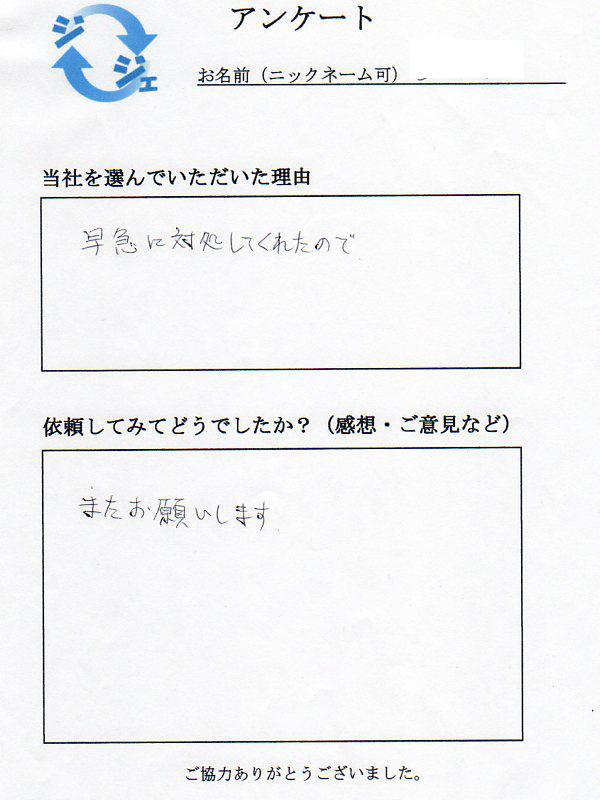 ジジェ
アンケート
お名前（ニックネーム可）
当社を選んでいただいた理由
早急に対処してくれたので
依頼してみてどうでしたか？（感想・ご意見など）
またお願いします
ご協力ありがとうございました。